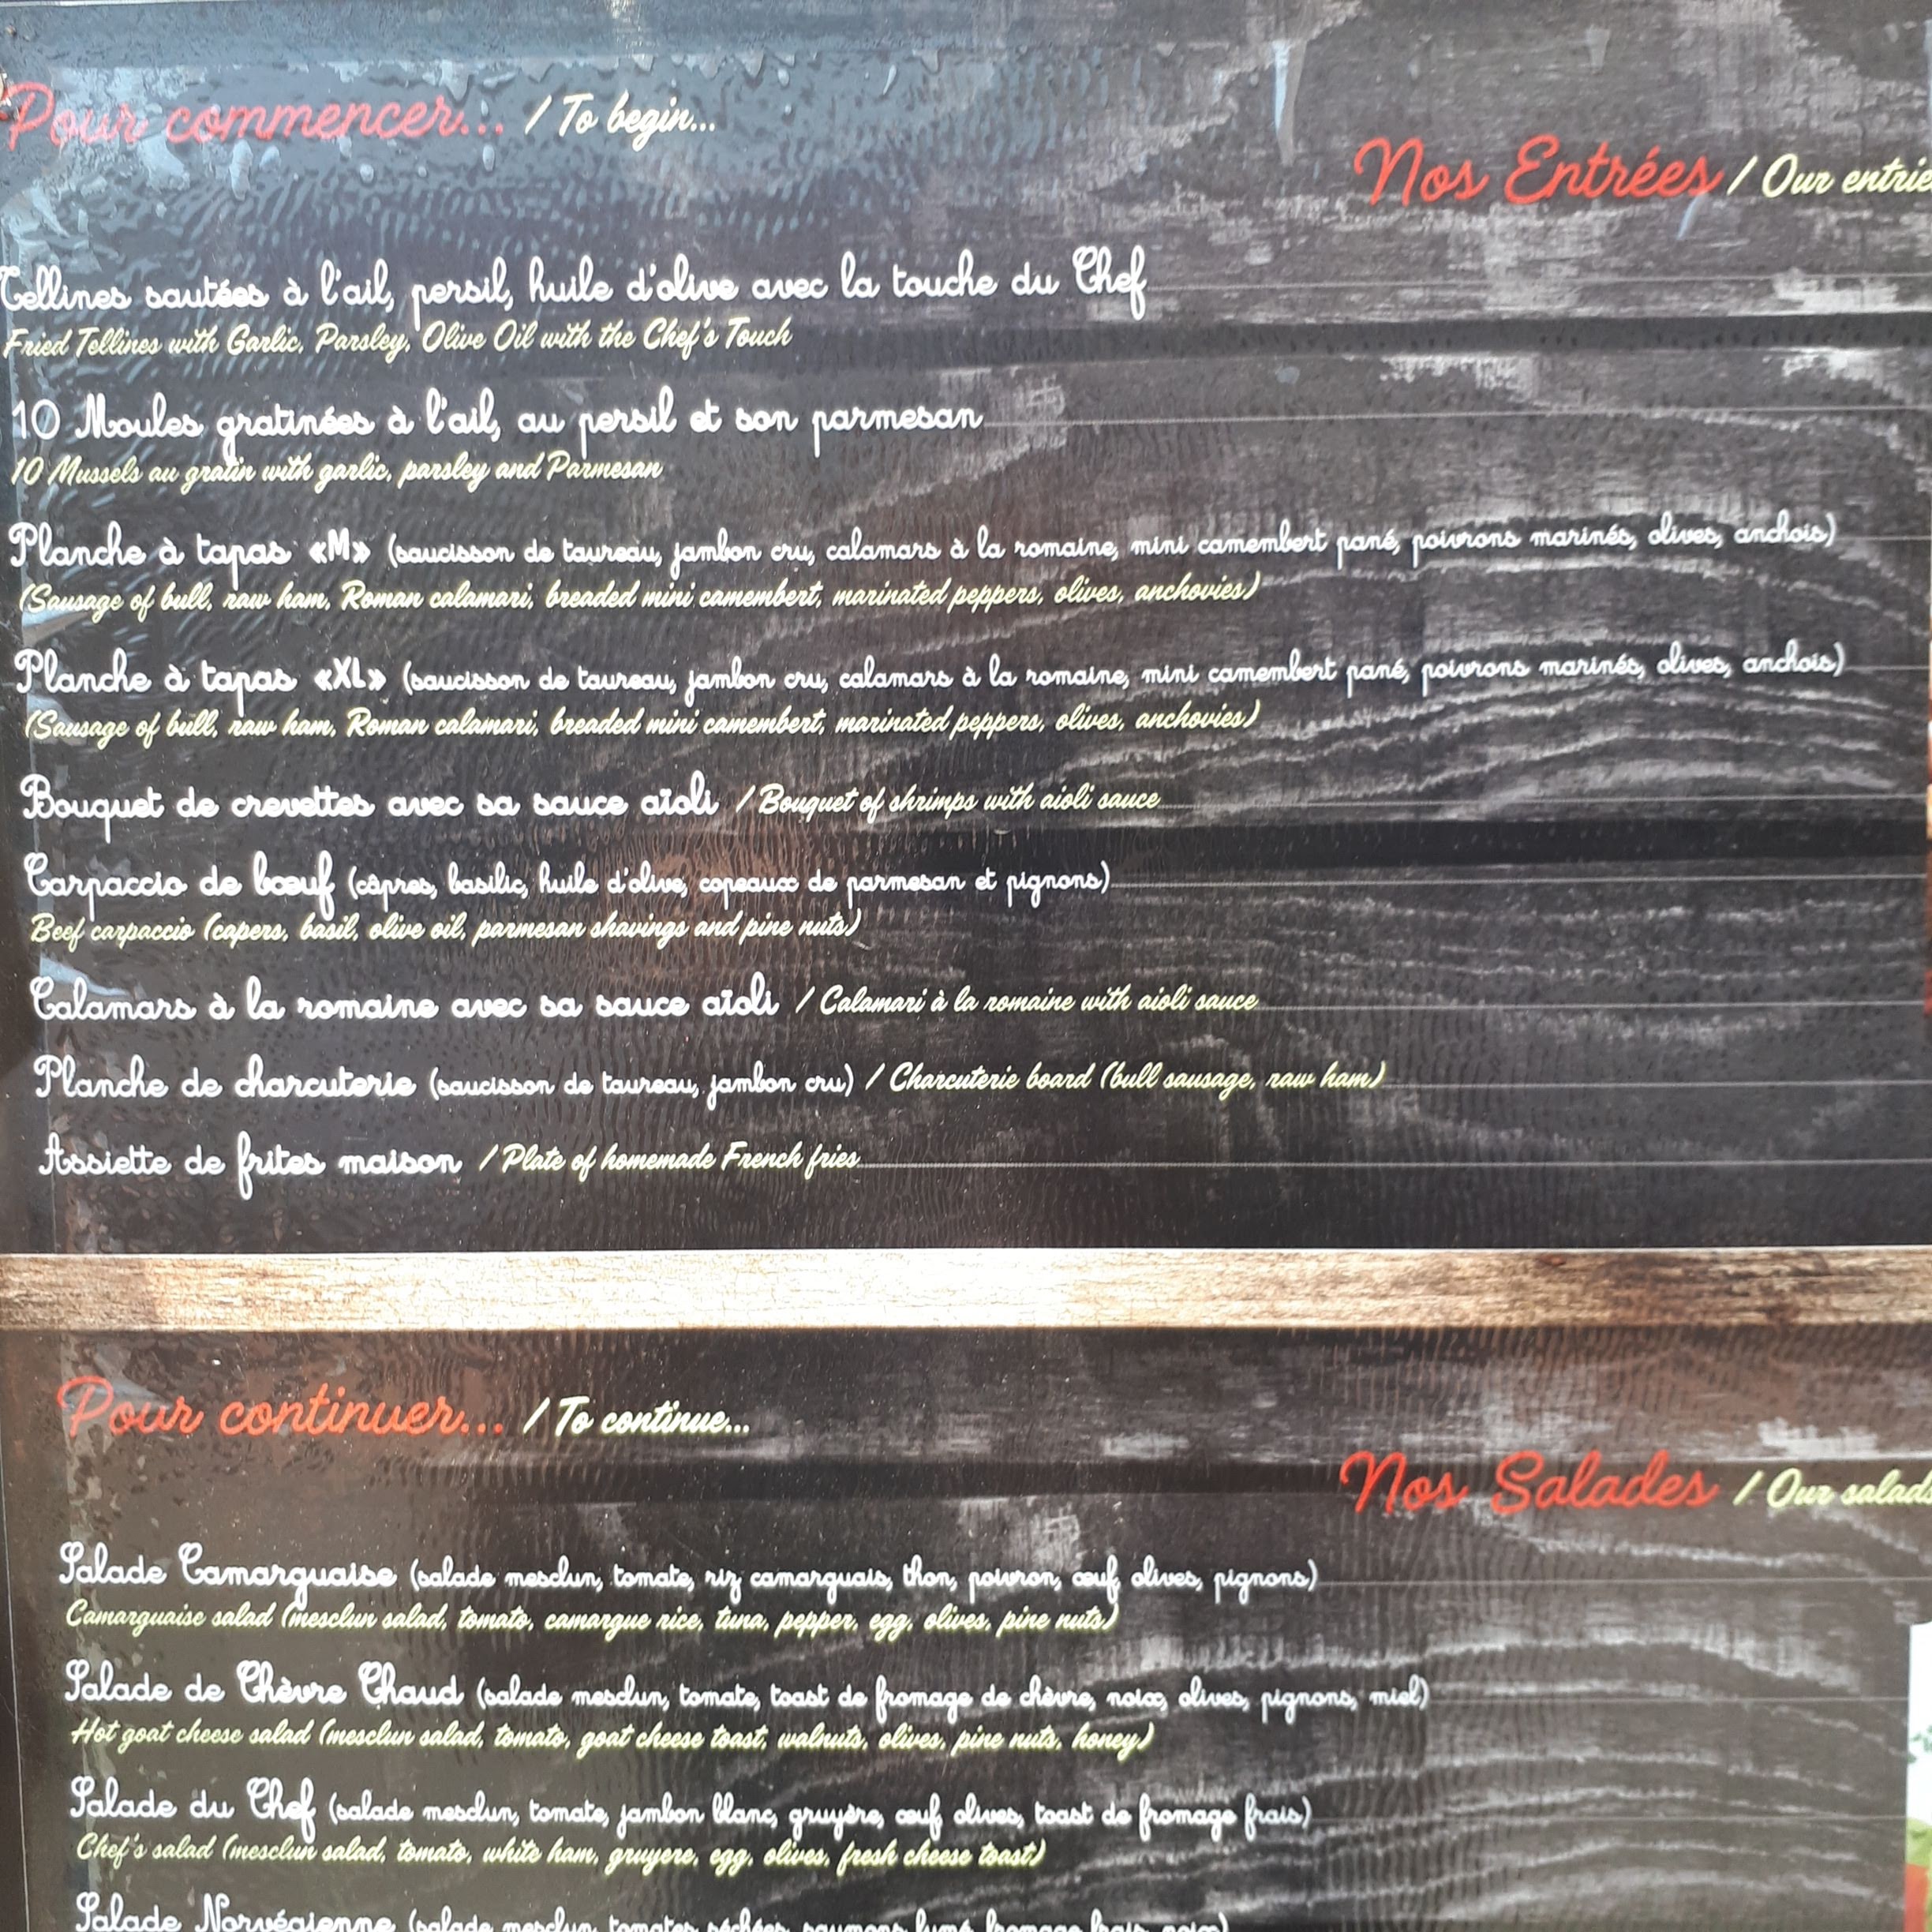 Pour commencer... / To begin...
Nos Entrées / Our entrie
Tellines sautées à l'ail, persil, huile d'olive avec la touche du Chef
Fried Tellines with Garlic, Parsley, Olive Oil with the Chef's Touch
10 Moules gratinées à l'ail, au persil et son parmesan
10 Mussels au gratin with garlic, parsley and Parmesan
Planche à tapas «M» (saucisson de taureau, jambon cru, calamars à la romaine, mini camembert pané, poivrons marinés, olives, anchois)
(Sausage of bull, raw ham, Roman calamari, breaded mini camembert, marinated peppers, olives, anchovies)
Planche à tapas «XL» (saucisson de taureau, jambon cru, calamars à la romaine, mini camembert pané, poivrons marinés, olives, anchois)
(Sausage of bull, raw ham, Roman calamari, breaded mini camembert, marinated peppers, olives, anchovies)
Bouquet de crevettes avec sa sauce aïoli / Bouquet of shrimps with aioli sauce
Carpaccio de bœuf (câpres, basilic, huile d'olive, copeaux de parmesan et pignons)
Beef carpaccio (capers, basil, olive oil, parmesan shavings and pine nuts)
Calamars à la romaine avec sa sauce aïoli / Calamari à la romaine with aioli sauce
Planche de charcuterie (saucisson de taureau, jambon cru) / Charcuterie board (bull sausage, raw ham)
Assiette de frites maison / Plate of homemade French fries
Pour continuer... / To continue...
Nos Salades / Our salads
Salade Camarguaise (salade mesclun, tomate, riz camarguais, thon, poivron, œuf, olives, pignons)
Camarguaise salad (mesclun salad, tomato, camargue rice, tuna, pepper, egg, olives, pine nuts)
Salade de Chèvre Chaud (salade mesclun, tomate, toast de fromage de chèvre, noix, olives, pignons, miel)
Hot goat cheese salad (mesclun salad, tomato, goat cheese toast, walnuts, olives, pine nuts, honey)
Salade du Chef (salade mesclun, tomate, jambon blanc, gruyère, œuf, olives, toast de fromage frais)
Chef's salad (mesclun salad, tomato, white ham, gruyere, egg, olives, fresh cheese toast)
Salade Norvégienne (salade mesclun, tomates séchées, saumons fumé, fromage frais, noix)